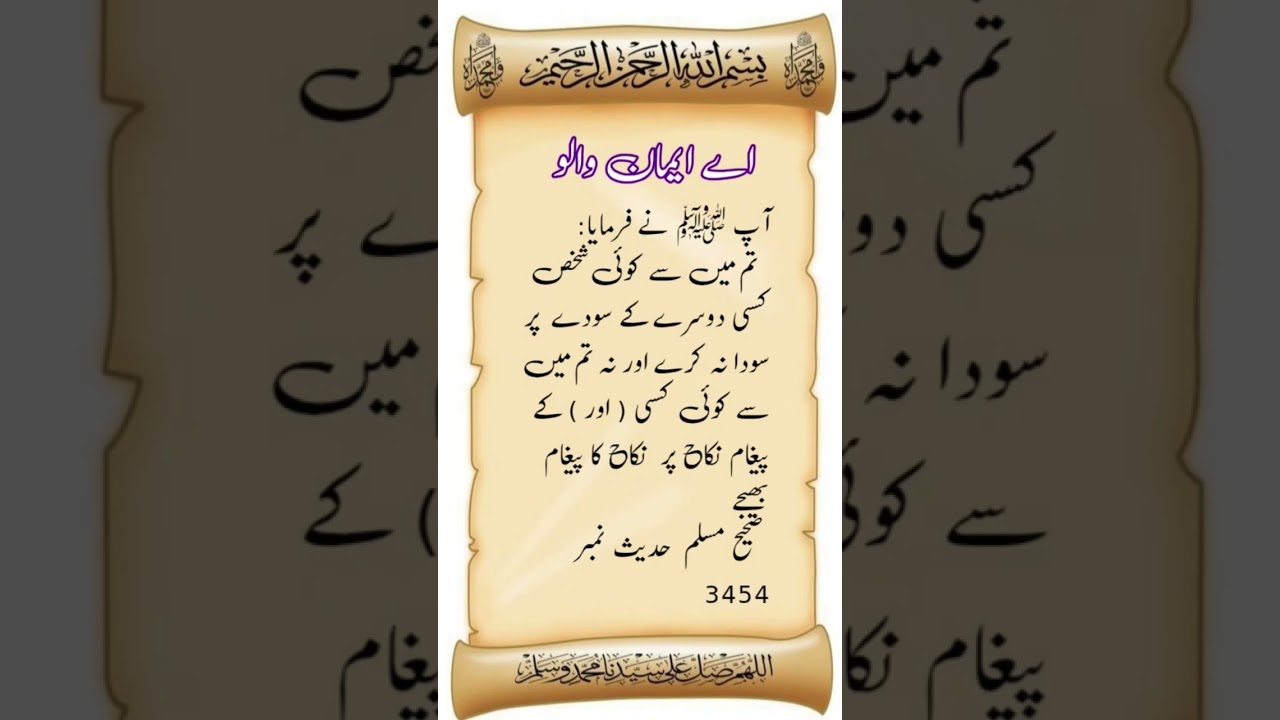 بسم الله الرحمن الرحيم
اے ایمان والو
آپ ﷺ نے فرمایا:
تم میں سے کوئی شخص
کسی دوسرے کے سودے پر
سودا نہ کرے اور نہ تم میں
سے کوئی کسی ( اور ) کے
پیغام نکاح پر نکاح کا پیغام
بھیجے
صحیح مسلم حدیث نمبر
3454
اللهم صل على سيدنا محمد وسلم